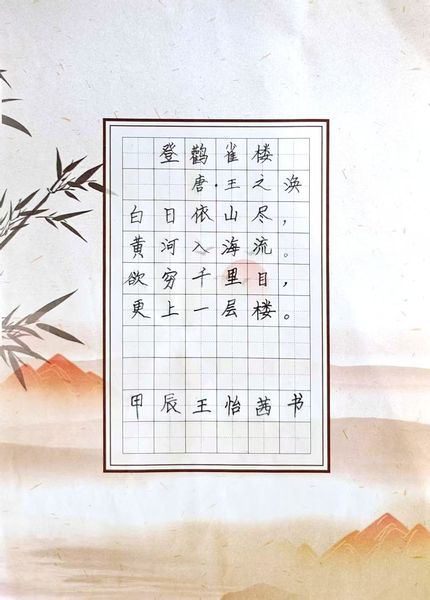 登鹳雀楼
唐·王之涣
白日依山尽，
黄河入海流。
欲穷千里目，
更上一层楼。
甲辰王怡茜书